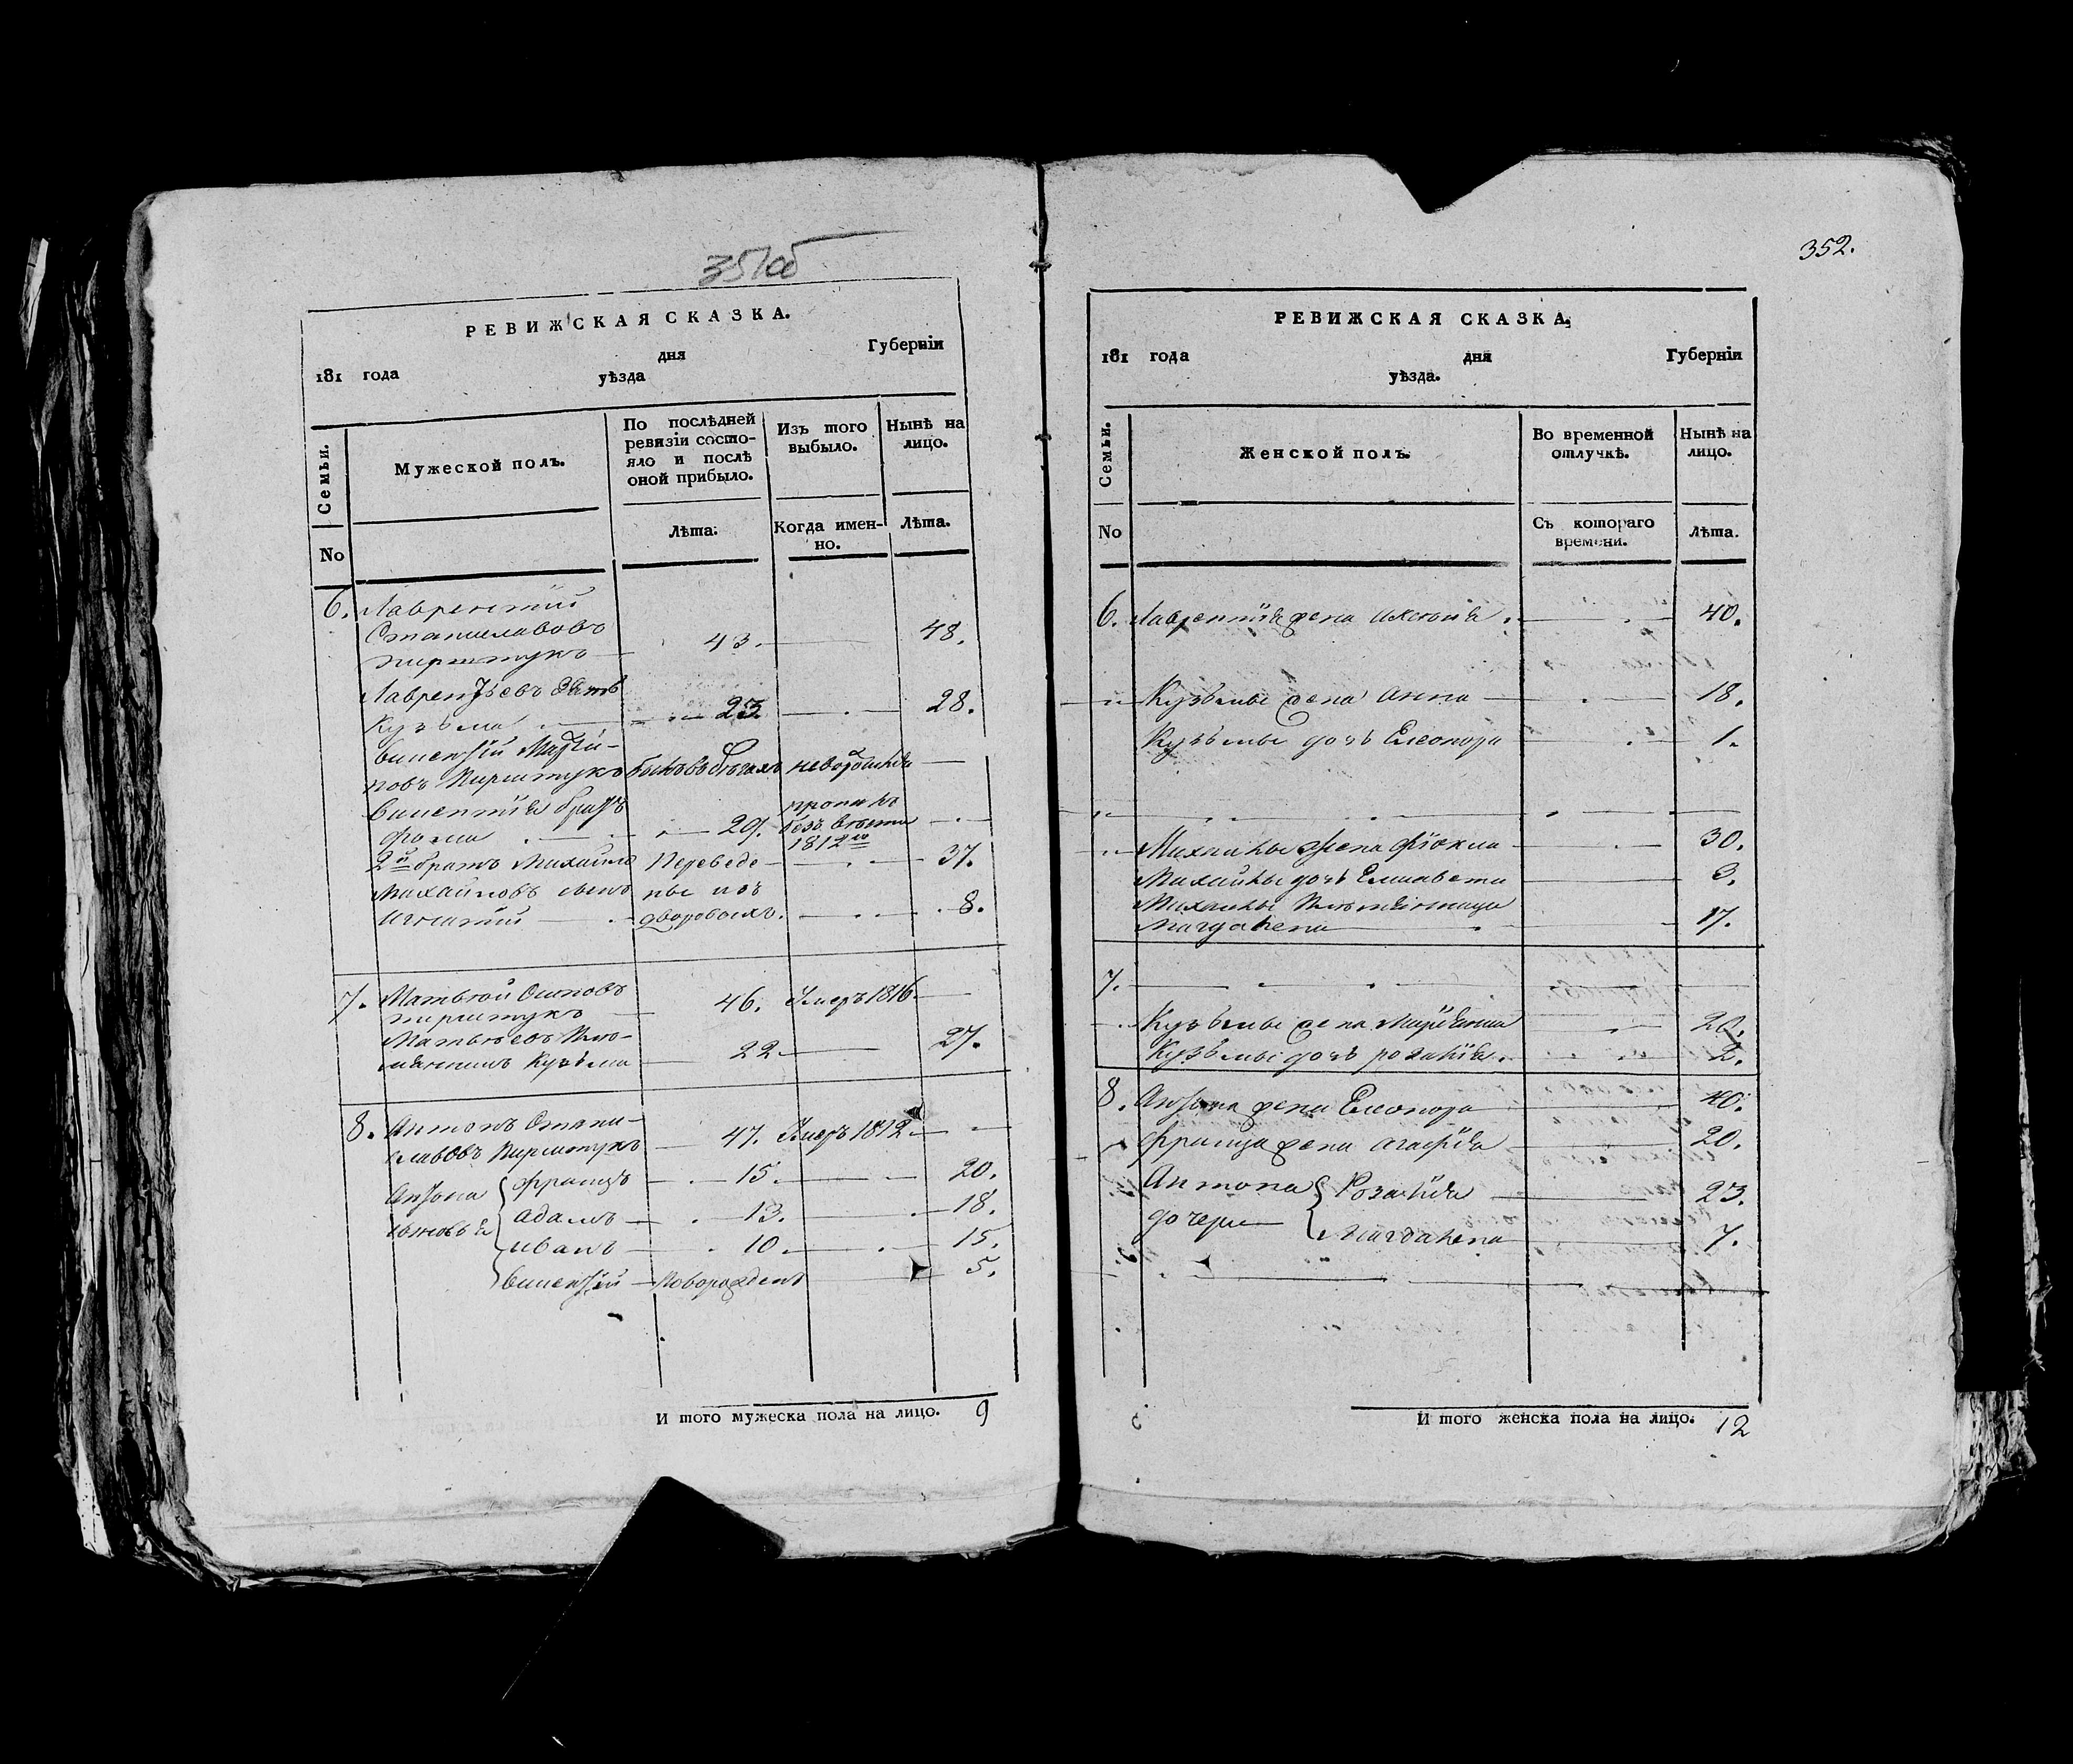 351об
РЕВИЖСКАЯ СКАЗКА.
181 года дня Губерніи
уѣзда
Семьи.
Мужеской полъ.
По послѣдней
ревизіи состо-
яло и послѣ
оной прибыло.
Изъ того
выбыло.
Нынѣ на
лицо.
No
Лѣта.
Когда имен-
но.
Лѣта.
6. Лаврентій
Станиславовъ
Пирштукъ 43. 48.
Лаврентьевъ зять
Кузьма 23 28.
Викентій Марти-
новъ Пирштукъ бывъ въ бѣгахъ
Викентія братъ пропалъ
Фома 29. безъ вѣсти
1812го
2й братъ Михайло Переведе- 37.
Михайловъ сынъ ны изъ
Игнатій дворовыхъ. 8.
7. Матвѣй Осиповъ
Пирштукъ 46. Умеръ 1816.
Матвѣевъ Пле-
мянникъ Кузьма 22 27.
8. Антонъ Стани-
славовъ Пирштукъ 47. Умеръ 1812
Антона Францъ 15. 20.
сыновья Адамъ 13. 18.
Иванъ 10. 15.
Викентій Новорожденъ 5.
И того мужеска пола на лицо. 9
352.
РЕВИЖСКАЯ СКАЗКА,
181 года дня Губерніи
уѣзда.
Семьи.
Женской полъ.
Во временной
отлучкѣ.
Нынѣ на
лицо.
No
Съ котораго
времени.
Лѣта.
6. Лаврентія жена 40.
Кузьмы жена Анна 18.
Кузьмы дочь Елеонора 1.
Михайлы жена Фіокла 30.
Михайлы дочь Елисавета 3.
Михайлы Племянница
Магдалена 17.
7.
Кузьмы жена Маріянна 20.
Кузьмы дочь Розалія. 2.
8. Антона жена Елеонора 40.
Франца жена Агафія 20.
Антона Розалія 23.
дочери Магдалена 7.
И того женска пола на лицо. 12